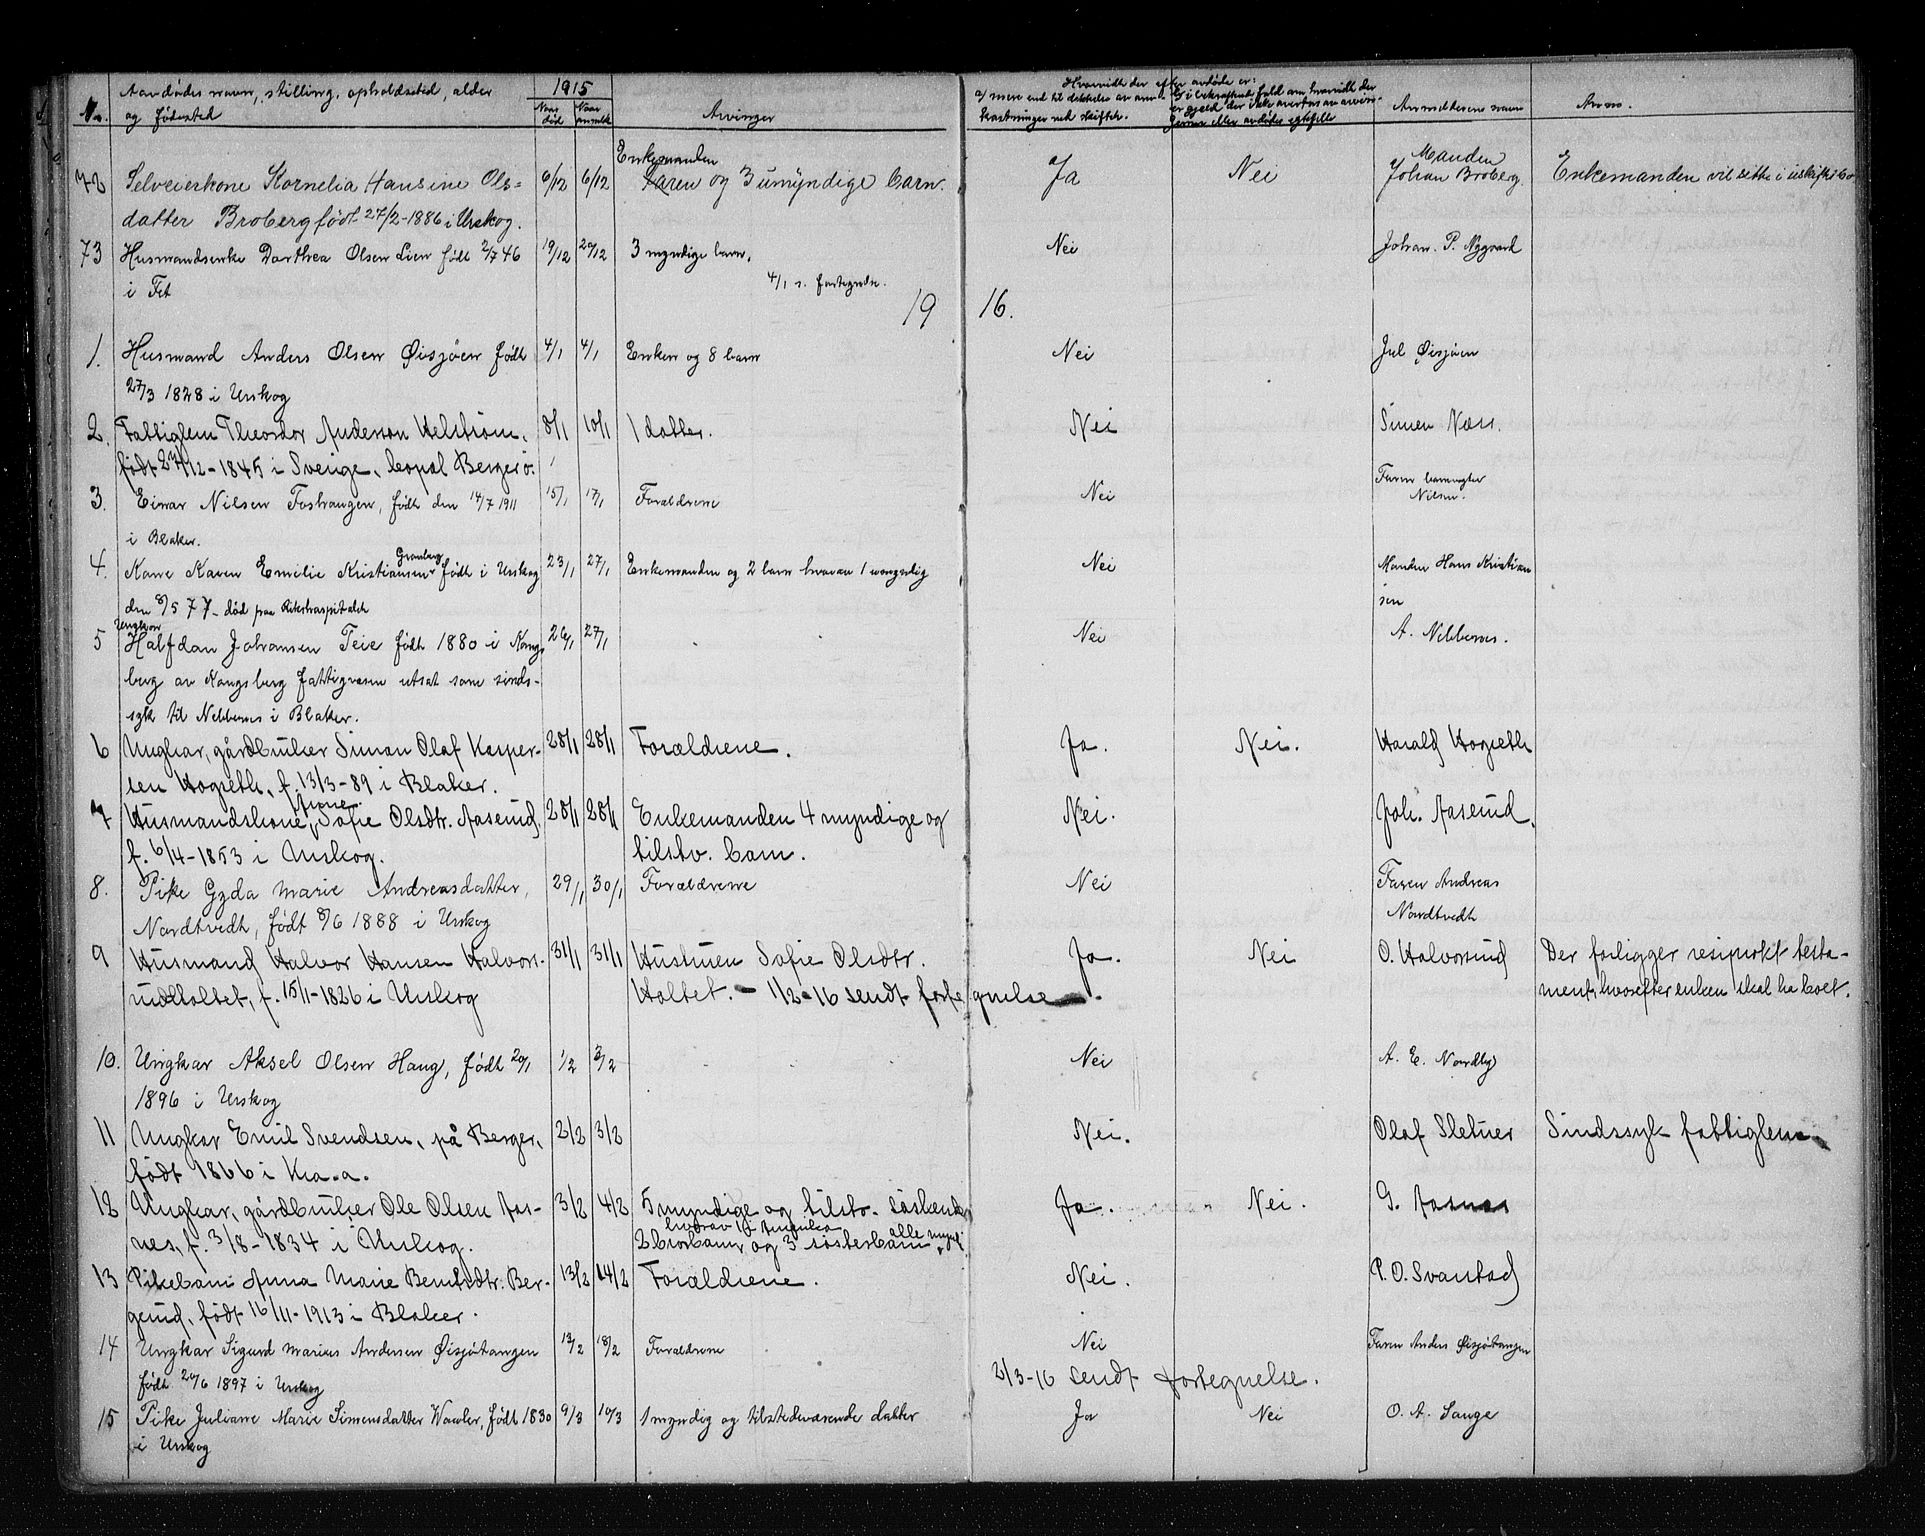 Avdødes navn, stilling, opholdssted, alder
og fødested
No.
1915
Naar død
Naar anmeldt
Arvinger
Hvorvidt der efter avdøde er:
a/ mere end til dekkelse av om-
kostninger ved skiftet.
b/ i bekræftende fald om hvorvidt der
er gjæld der ikke overtas av arvin-
gerne eller avdødes egtefelle
Anmelderens navn
Anm.
72 Selveierkone Kornelia Hansine Ols= 6/12 6/12 Enkemanden og 3 umyndige barn. Ja Nei Manden Johan Broberg. Enkemanden vil sitte i uskiftet bo
datter Broberg født 27/2-1886 i Urskog.
73 Husmandsenke Dorthea Olsen Lien født 2/7 46 19/12 20/12 3 myndige barn. Nei Johan. P. Nygaard
i Fet 4/1 s. fortegnelse.
1916.
1. Husmand Anders Olsen Øisjøen født 4/1 4/1 Enken og 8 barn Nei Jul Øisjøen
27/3 1828 i Urskog
2. Fattiglem Theodor Anderson Helström, 8/1 10/1 1 datter. Nei Simen Næss.
født 27/12-1845 i Sverige, bopæl Berger ø.
3. Einar Nilsen Foshaugen, født den 14/7 1911 15/1 17/1 Forældrene Nei Faren
Nilsen.
i Blaker.
4. Kone Karen Emilie Kristiansen Granberg født i Urskog 23/1 27/1 Enkemanden og 2 barn hvorav 1 umyndig Nei Manden Hans Kristian
sen
den 8/5 77 - død paa Rikshospitalet
5 Ungkar Halfdan Johansen Teie født 1880 i Kongs 26/1 27/1 Nei A. Nebbenes.
berg av Kongsberg fattigvæsen utsat som sinds-
syk til Nebbenes i Blaker.
6 Ungkar, gårdbruker Simon Olaf Kasper- 28/1 28/1 Forældrene. Ja. Nei. Harald Hogseth
sen Hogseth, f. 13/3-89 i Blaker.
7 Husmandskone, Sofie Olsdtr. Aaserud, 28/1 28/1 Enkemanden 4 myndige og Nei. Joh. Aaserud.
f. 6/4-1853 i Urskog. tilstv. barn.
8. Pike Gyda Marie Andreasdatter, 29/1 30/1 Forældrene Nei Faren Andreas
Nordtvedt, født 8/6 1888 i Urskog Nordtvedt
9 Husmand Halvor Hansen Halvors- 31/1 31/1 Hustruen Sofie Olsdtr. Ja. Nei O. Halvorsrud Der forligger resiprokt testa-
rudholtet, f. 15/1-1826 i Urskog Holtet. - 1/2-16 sendt fortegnelse. ment, hvorefter enken skal ha boet.
10. Ungkar Aksel Olsen Haug, født 20/1 1/2 3/2 Nei A. E. Nordby
1896 i Urskog
11 Ungkar Emil Svendsen, på Berger, 2/2 3/2 Nei. Olaf Sletner Sindssyk fattiglem.
født 1866 i Kra.a.
12 Ungkar, gårdbruker Ole Olsen Aas- 3/2 4/2 5 myndige og tilstv. søskende Ja. Nei. G. Aasnes
nes, f. 3/8-1834 i Urskog. 2 brorbarn, hvorav 1 i Amerika og 3 søsterbarn alle mynd.
13 Pikebarn Anna Marie Berntsdtr. Ber- 13/2 14/2 Forældrene. Nei. P. O. Svarstad
gerud, født 16/11-1913 i Blaker.
14 Ungkar Sigurd Marius Andersen Øisjøtangen 13/2 18/2 Forældrene Nei Faren Anders Øisjøtangen
født 20/6 1897 i Urskog 2/3-16 sendt fortegnelse.
15 Pike Juliane Marie Simensdatter Waaler, født 1830 9/3 10/3 1 myndig og tilstedeværende datter Ja Nei O. A. Lange
i Urskog